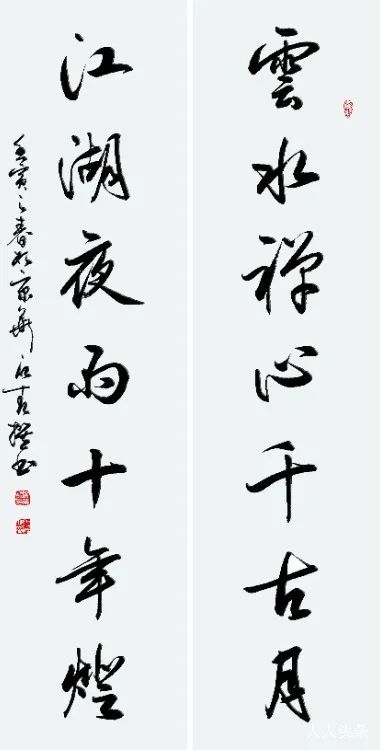 雲水禅心千古月
江湖夜雨十年燈
壬寅之春於京華
人人头条